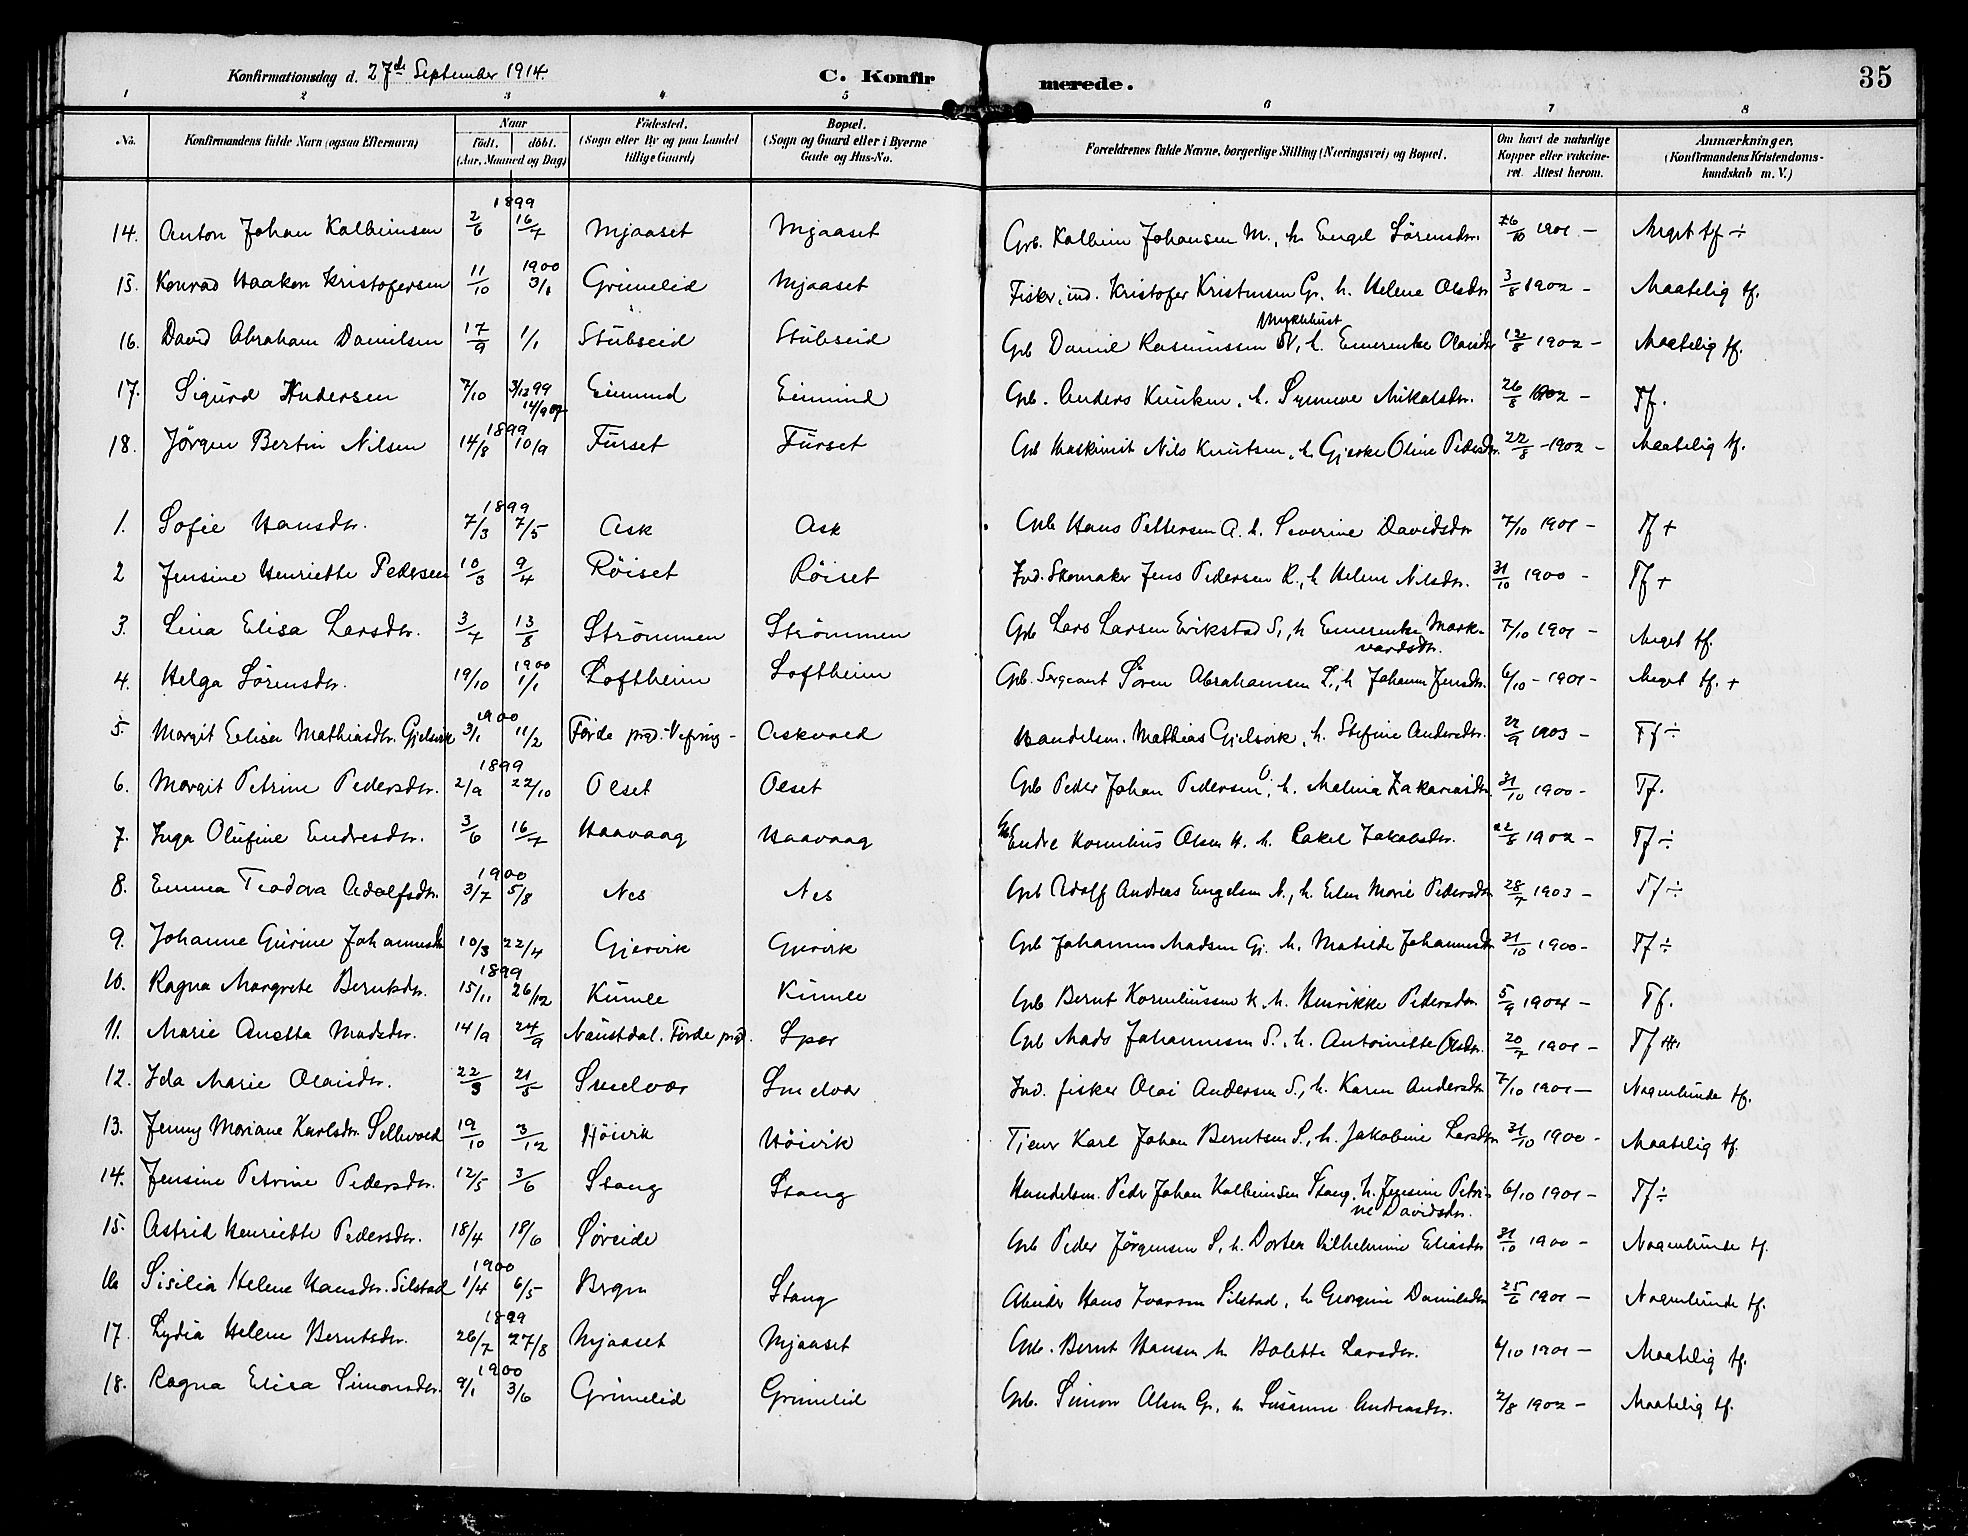 Konfirmationsdag d. 27de September 1914. C. Konfir merede. 35
1 2 3 4 5 6 7 8
No. Konfirmandens fulde Navn (ogsaa Efternavn) Naar født. døbt. (Aar, Maaned og Dag) Fødested. (Sogn eller By og paa Landet tillige Gaard) Bopæl. (Sogn og Gaard eller i Byerne Gade og Hus-No. Forældrenes fulde Navne, borgerlige Stilling (Næringsvei) og Bopæl. Om havt de naturlige Kopper eller vakcineret. Attest herom. Anmærkninger. (Konfirmandens Kristendomskundskab m. V.)
1899
14. Anton Johan Kolbeinsen 2/6 16/7 Mjaaset Mjaaset Grb. Kolbein Johansen M., h. Engel Sörensdr. 16/10 1901 - Meget tf ÷
1900
15. Konrad Haakon Kristofersen 11/10 3/6 Grimelid Mjaaset Fisker, ind. Kristofer Kristensen Gr. h. Helene Olsdr 3/8 1902 - Maatelig tf.
16. David Abraham Danielsen 17/9 1/1 Stubseid Stubseid Gb Daniel Rasmussen Myklebust, h. Emerentse Olaisdr 12/8 1902 - Maatelig tf.
17. Sigurd Andersen 7/10 3/12 99 14/9 07 Eimind Eimind Gb. Anders h. Synneve Mikalsdr. 26/8 1902 - Tf.
1899
18. Jörgen Bertin Nilsen 14/8 10/9 Furset Furset Gb Maskinist Nils Knutsen, h. Gjerke Oline Pedersdr. 22/8 - 1902 - Maatelig tf.
1899
1. Sofie Hansdr. 7/3 7/5 Ask Ask Gb Hans Pettersen A. h. Severine Davidsdr 7/10 1901 - Tf +
2 Jensine Henriette Pedersen 10/3 9/4 Röiset Röiset Ind. Skomaker Jens Pedersen R., h Helene Nilsdr. 31/10 1900 - Tf +
3. Lina Elisa Larsdr. 3/7 13/8 Strömmen Strömmen Gb Lars Larsen Erikstad S., h Emerentse Mark-
vardsdr. 7/10 1901 - Meget tf.
4. Helga Sörensdr. 19/10 1900 1/1 Loftheim Loftheim Gb. Sergeant Sören Abrahamsen L., h Johanne Jensdr. 6/10 - 1901 - Meget tf. +
1900
5. Margit Elisa Mathiasdr. Gjelsvik 3/1 11/2 Förde præ. Vefring - Askvoed Handelsm. Mathias Gjelsvik, h. Stefine Andersdr. 22/9 1903 - Tf ÷
1899
6. Margit Petrine Pedersdr. 2/9 22/10 Olset Olset Gb Peder Johan Pedersen O., h. Malina Zakariasdr. 31/10 1900 - Tf.
7. Inga Olufine Endresdr. 3/6 16/7 Haavaag Haavaag Gb Endre Kornelius Olsen H. h. Rakel Jakobsdr. 22/8 1902 - Tf ÷
1900
8. Emma Teodora Adolfsdr. 3/7 5/8 Nes Nes Gb Adolf Andreas Engelsen N., h. Elen Marie Pedersdr 28/7 1903 - Tf ÷
9. Johanne Gurine Johannesdr 10/3 22/4 Gjervik Gjervik Gb Johannes Madsen Gj. h. Matilde Johannesdr 31/10 1900 - Tf ÷
1899
10. Ragna Margrete Berntsdr. 15/11 26/12 Kumle Kumle Gb Bernt Korneliussen K. h. Henrikke Pedersdr. 5/9 1904 - Tf.
11. Marie Anetta Madsdr. 14/9 24/9 Naustdal. Förde præ. Sper Gb Mads Johannesen S., h. Antoinette Olsdr. 20/7 1901 - Tf
12. Ida Marie Olaisdr. 22/3 21/5 Smelvær Smelvær Ind. fisker Olai Andersen S., h. Karen Andersdr 7/10 1901 - Nogenlunde tf.
13. Jenny Mariane Karlsdr. Sellevoed 19/10 3/12 Höivik Höivik Tjener Karl Johan Berntsen S., h. Jakobine Larsdr 31/10 1900 - Maatelig tf.
14. Jensine Petrine Pedersdr. 12/5 3/6 Stang Stang Handelsm. Peder Johan Kolbeinsen Stang, h. Jensine Petri-
ne Davidsdr. 6/10 1901 - Tf ÷
15. Astrid Henriette Pedersdr. 18/4 18/6 Sörseide Gb Peder Jörgensen S., h. Dortea Vilhelmine Eliasdr 31/10 1900 - Nogenlunde tf.
1900
16 Sisilia Helene Hansdr. Silstad 1/4 6/5 Brgn Stang Arbeider Hans Ivarsen Silstad, h Georgine Danielsdr 25/6 1901 - Nogenlunde tf.
1899
17. Lydia Helene Berntsdr. 26/7 27/8 Mjaaset Mjaaset Gb. Bernt Hansen h Bolette Larsdr. 6/10 1901 - Maatelig tf.
1900
18. Ragna Elisa Simonsdr. 9/1 3/6 Grimelid Grimelid Gb. Simon Olsen Gr. h Susanne Andreasdr. 2/8 1902 - Maatelig tf.